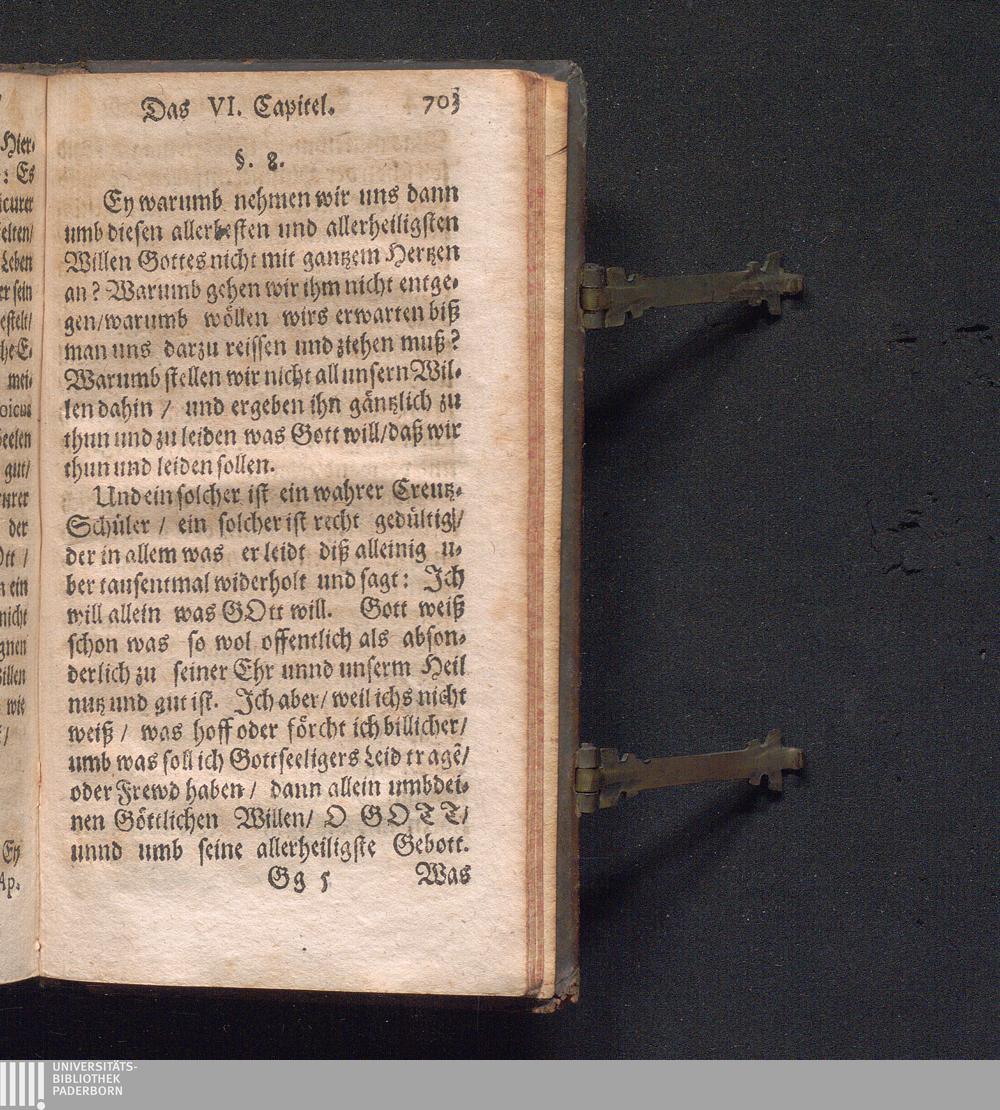 Das VI. Capitel. 703
§. 8.
Ey warumb nehmen wir uns dann
umb diesen allerbesten und allerheiligsten
Willen Gottes nicht mit gantzem Hertzen
an? Warumb gehen wir ihm nicht entge-
gen/warumb wöllen wirs erwarten biß
man uns darzu reissen und ziehen muß?
Warumb stellen wir nicht all unsern Wil-
len dahin / und ergeben ihn gäntzlich zu
thun und zu leiden was Gott will/daß wir
thun und leiden sollen.
Und ein solcher ist ein wahrer Creutz-
Schüler / ein solcher ist recht gedültig/
der in allem was er leidt diß alleinig u-
ber tausentmal widerholt und sagt: Ich
will allein was GOtt will. Gott weiß
schon was so wol offentlich als abson-
derlich zu seiner Ehr unnd unserm Heil
nutz und gut ist. Ich aber/ weil ichs nicht
weiß / was hoff oder förcht ich billicher/
umb was soll ich Gottseeligers Leid tragẽ/
oder Frewd haben/ dann allein umb dei-
nen Göttlichen Willen/ O GOTT/
unnd umb seine allerheiligste Gebott.
Gg 5 Was
Hier-
: Es
icurer
elten/
Leben
er sein
estelt/
he E-
mei-
oicus
eelen
gut/
urer
der
Ott /
n ein
nicht
gnen
illen
wie
/
Ey
Ap-
UNIVERSITÄTS-
BIBLIOTHEK
PADERBORN